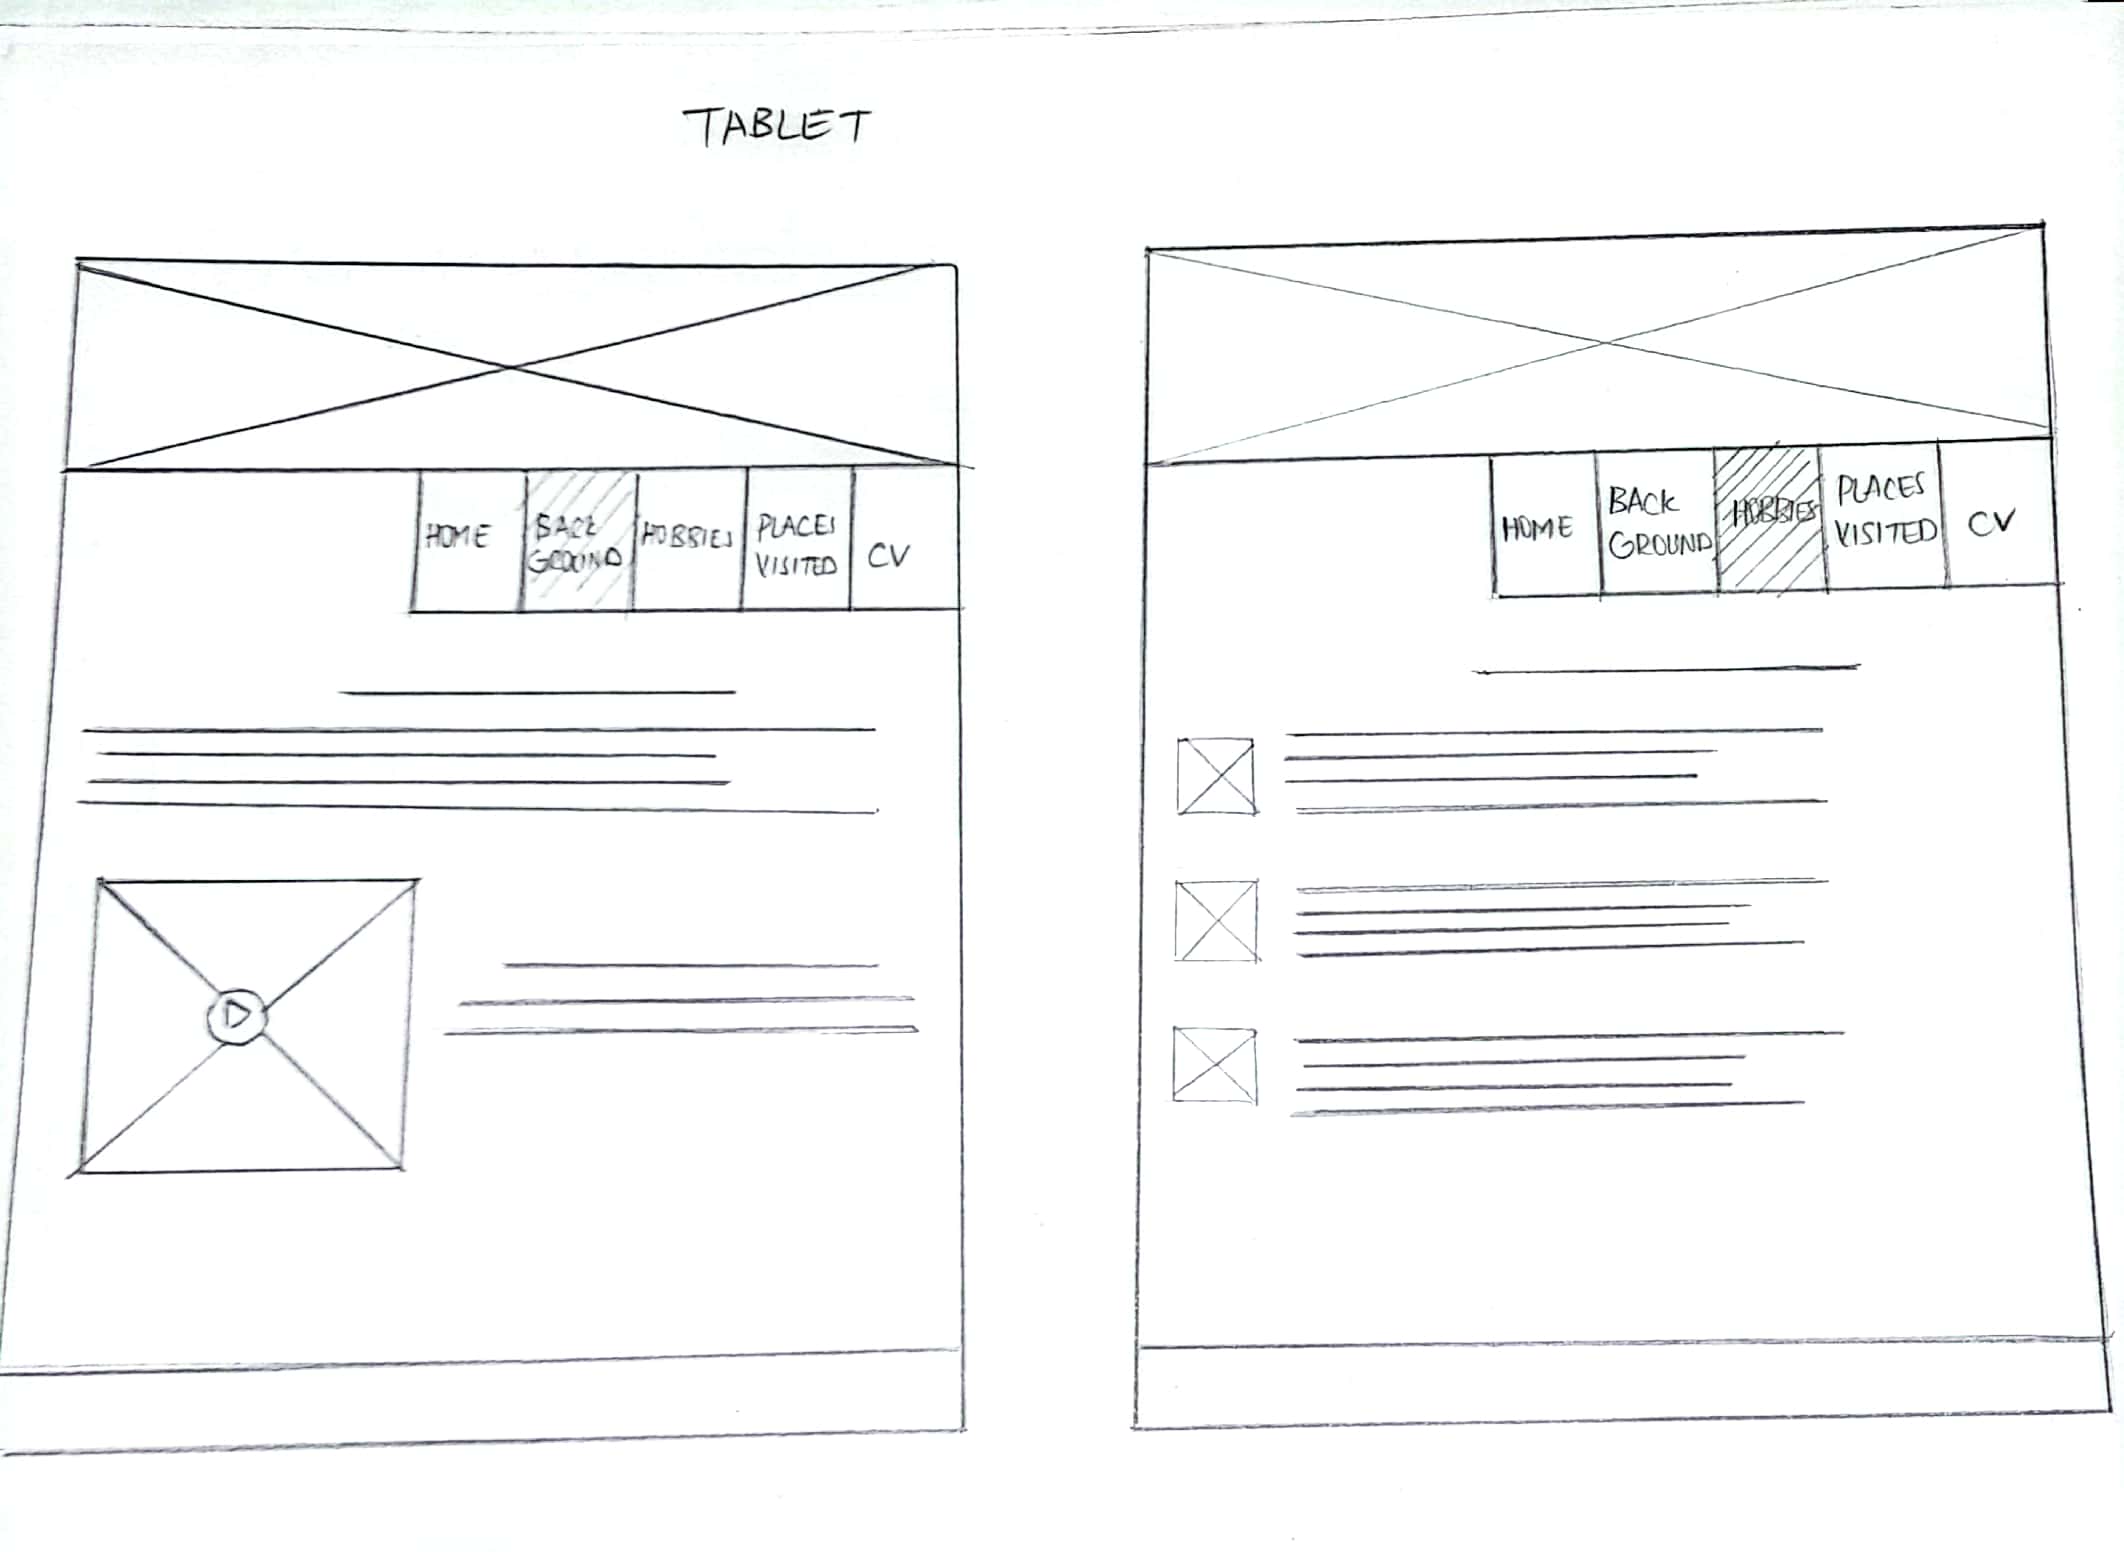 TABLET
HOME
BACK
GROUND
HOBBIES
PLACES
VISITED
CV
HOME
BACK
GROUND
HOBBIES
PLACES
VISITED
CV